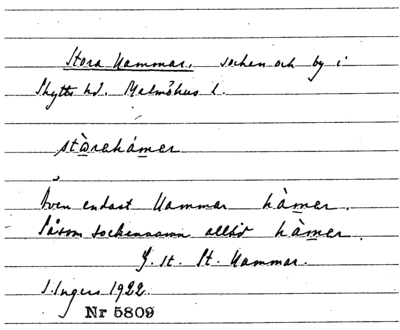 Stora Hammar, socken och by i
Skytts hd. Malmöhus l.
stòrahámer
Även endast Hammar hàmer.
Såsom sockennamn alltid hàmer.
J. st. St. Hammar.
I. Ingers 1922.
Nr 5809